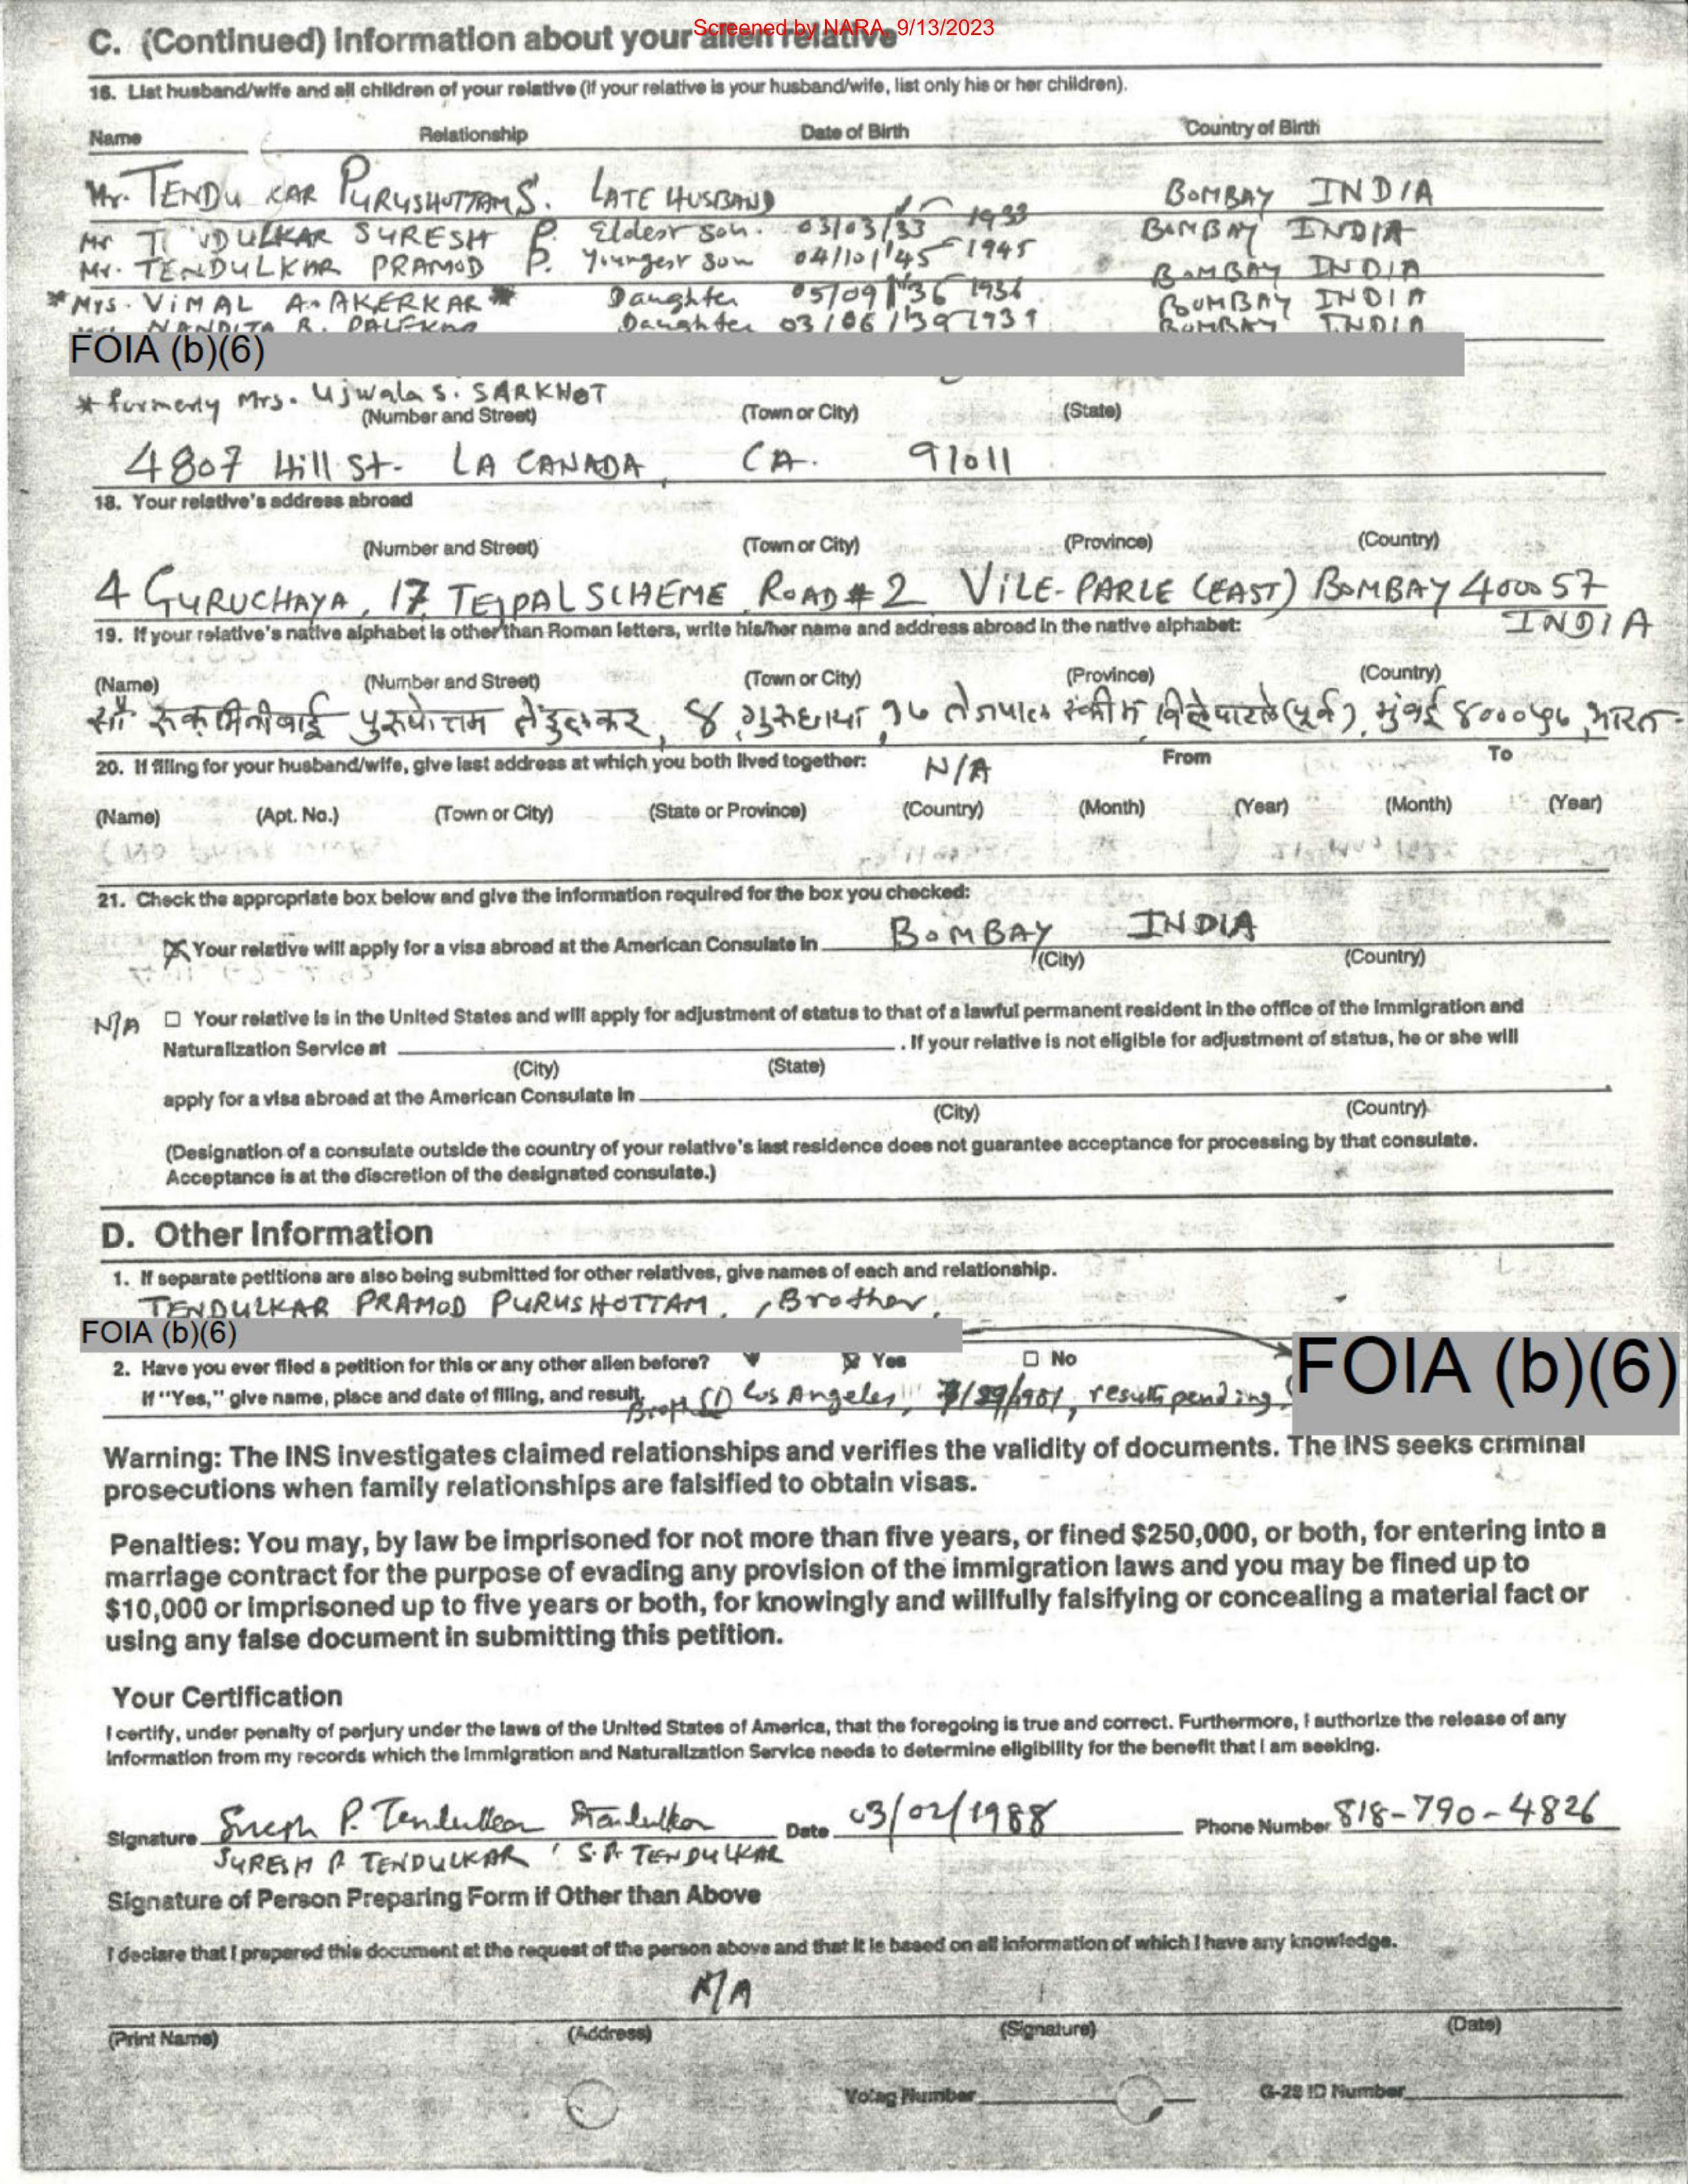 Screened by NARA, 9/13/2023
C. (Continued) Information about your alien relative
16. List husband/wife and all children of your relative (if your relative is your husband/wife, list only his or her children).
Name Relationship Date of Birth Country of Birth
Mr. TENDULKAR PURUSHOTTAM S. LATE HUSBAND BOMBAY INDIA
Mr TENDULKAR SURESH P. Eldest son. 03/03/33 1933 BOMBAY INDIA
Mr. TENDULKAR PRAMOD P. Youngest son 04/10/'45 1945 BOMBAY INDIA
*Mrs. VIMAL A. AKERKAR* Daughter 05/09/'36 1936 BOMBAY INDIA
NANDITA R. PALEKAR Daughter 03/06/'39 1939 BOMBAY INDIA
FOIA (b)(6)
* formerly Mrs. Ujwala S. SARKHOT
(Number and Street) (Town or City) (State)
4807 Hill St. LA CANADA, CA. 91011
18. Your relative's address abroad
(Number and Street) (Town or City) (Province) (Country)
4 GURUCHAYA, 17, TEJPAL SCHEME ROAD # 2 VILE-PARLE (EAST) BOMBAY 400057
INDIA
19. If your relative's native alphabet is other than Roman letters, write his/her name and address abroad in the native alphabet:
(Name) (Number and Street) (Town or City) (Province) (Country)
सौ रुकमिनीबाई पुरुषोत्तम तेंडुलकर, ४, गुरुछाया, १७ तेजपाल स्कीम, विलेपारले (पूर्व), मुंबई ४०००५७, भारत
20. If filing for your husband/wife, give last address at which you both lived together: N/A From To
(Name) (Apt. No.) (Town or City) (State or Province) (Country) (Month) (Year) (Month) (Year)
21. Check the appropriate box below and give the information required for the box you checked:
Your relative will apply for a visa abroad at the American Consulate in BOMBAY INDIA
(City) (Country)
N/A Your relative is in the United States and will apply for adjustment of status to that of a lawful permanent resident in the office of the Immigration and
Naturalization Service at . If your relative is not eligible for adjustment of status, he or she will
(City) (State)
apply for a visa abroad at the American Consulate in
(City) (Country)
(Designation of a consulate outside the country of your relative's last residence does not guarantee acceptance for processing by that consulate.
Acceptance is at the discretion of the designated consulate.)
D. Other Information
1. If separate petitions are also being submitted for other relatives, give names of each and relationship.
TENDULKAR PRAMOD PURUSHOTTAM, Brother,
FOIA (b)(6)
2. Have you ever filed a petition for this or any other alien before? Yes No
FOIA (b)(6)
If "Yes," give name, place and date of filing, and result. (1) Los Angeles, result pending,
Warning: The INS investigates claimed relationships and verifies the validity of documents. The INS seeks criminal
prosecutions when family relationships are falsified to obtain visas.
Penalties: You may, by law be imprisoned for not more than five years, or fined $250,000, or both, for entering into a
marriage contract for the purpose of evading any provision of the immigration laws and you may be fined up to
$10,000 or imprisoned up to five years or both, for knowingly and willfully falsifying or concealing a material fact or
using any false document in submitting this petition.
Your Certification
I certify, under penalty of perjury under the laws of the United States of America, that the foregoing is true and correct. Furthermore, I authorize the release of any
information from my records which the Immigration and Naturalization Service needs to determine eligibility for the benefit that I am seeking.
Signature Suresh P. Tendulkar Date 03/02/1988 Phone Number 818-790-4826
SURESH P. TENDULKAR, S.P. TENDULKAR
Signature of Person Preparing Form if Other than Above
I declare that I prepared this document at the request of the person above and that it is based on all information of which I have any knowledge.
N/A
(Print Name) (Address) (Signature) (Date)
Volag Number G-28 ID Number